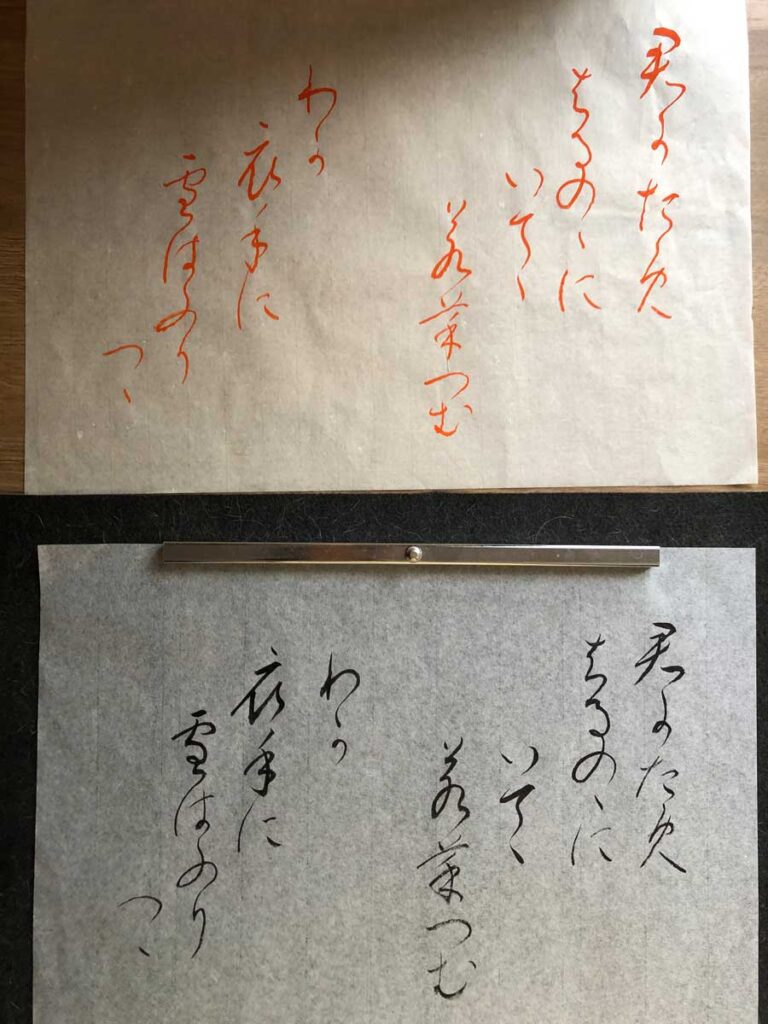 君かため
はるのゝに
いてゝ
若菜つむ
わか
衣手に
雪はふり
つゝ
君かため
はるのゝに
いてゝ
若菜つむ
わか
衣手に
雪はふり
つゝ